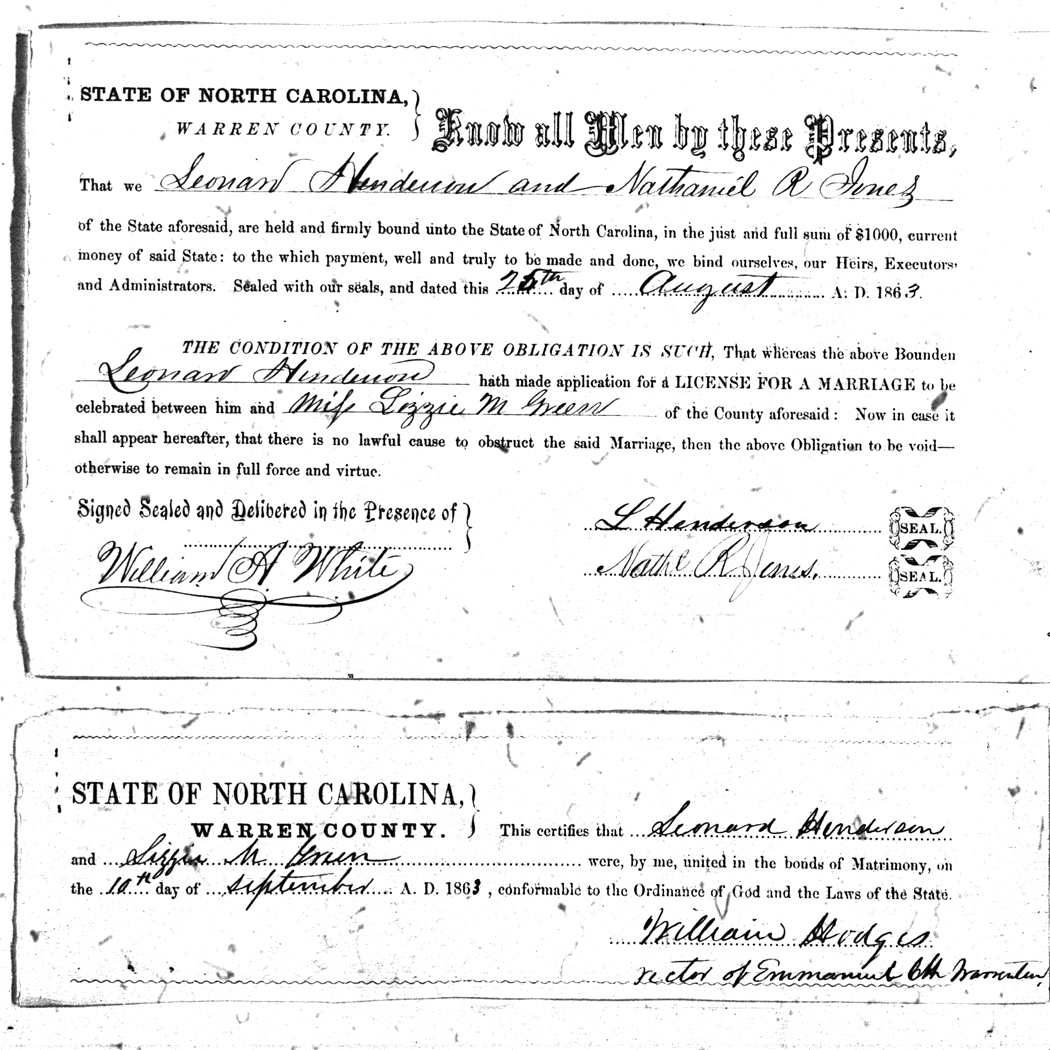 STATE OF NORTH CAROLINA,
WARREN COUNTY.
Know all Men by these Presents,
That we Leonard Henderson and Nathaniel R Jones
of the State aforesaid, are held and firmly bound unto the State of North Carolina, in the just and full sum of $1000, current
money of said State: to the which payment, well and truly to be made and done, we bind ourselves, our Heirs, Executors
and Administrators. Sealed with our seals, and dated this 25th day of August A. D. 1863.
THE CONDITION OF THE ABOVE OBLIGATION IS SUCH, That whereas the above Bounden
Leonard Henderson hath made application for a LICENSE FOR A MARRIAGE to be
celebrated between him and Miss Lizzie M Green of the County aforesaid: Now in case it
shall appear hereafter, that there is no lawful cause to obstruct the said Marriage, then the above Obligation to be void—
otherwise to remain in full force and virtue.
Signed Sealed and Delibered in the Presence of
L Henderson SEAL.
William A White
Nathl R Jones. SEAL.
STATE OF NORTH CAROLINA,
WARREN COUNTY.
This certifies that Leonard Henderson
and Lizzie M Green were, by me, united in the bonds of Matrimony, on
the 10th day of September A. D. 1863, conformable to the Ordinance of God and the Laws of the State.
William Hodges
rector of Emmanuel Chh Warrenton,